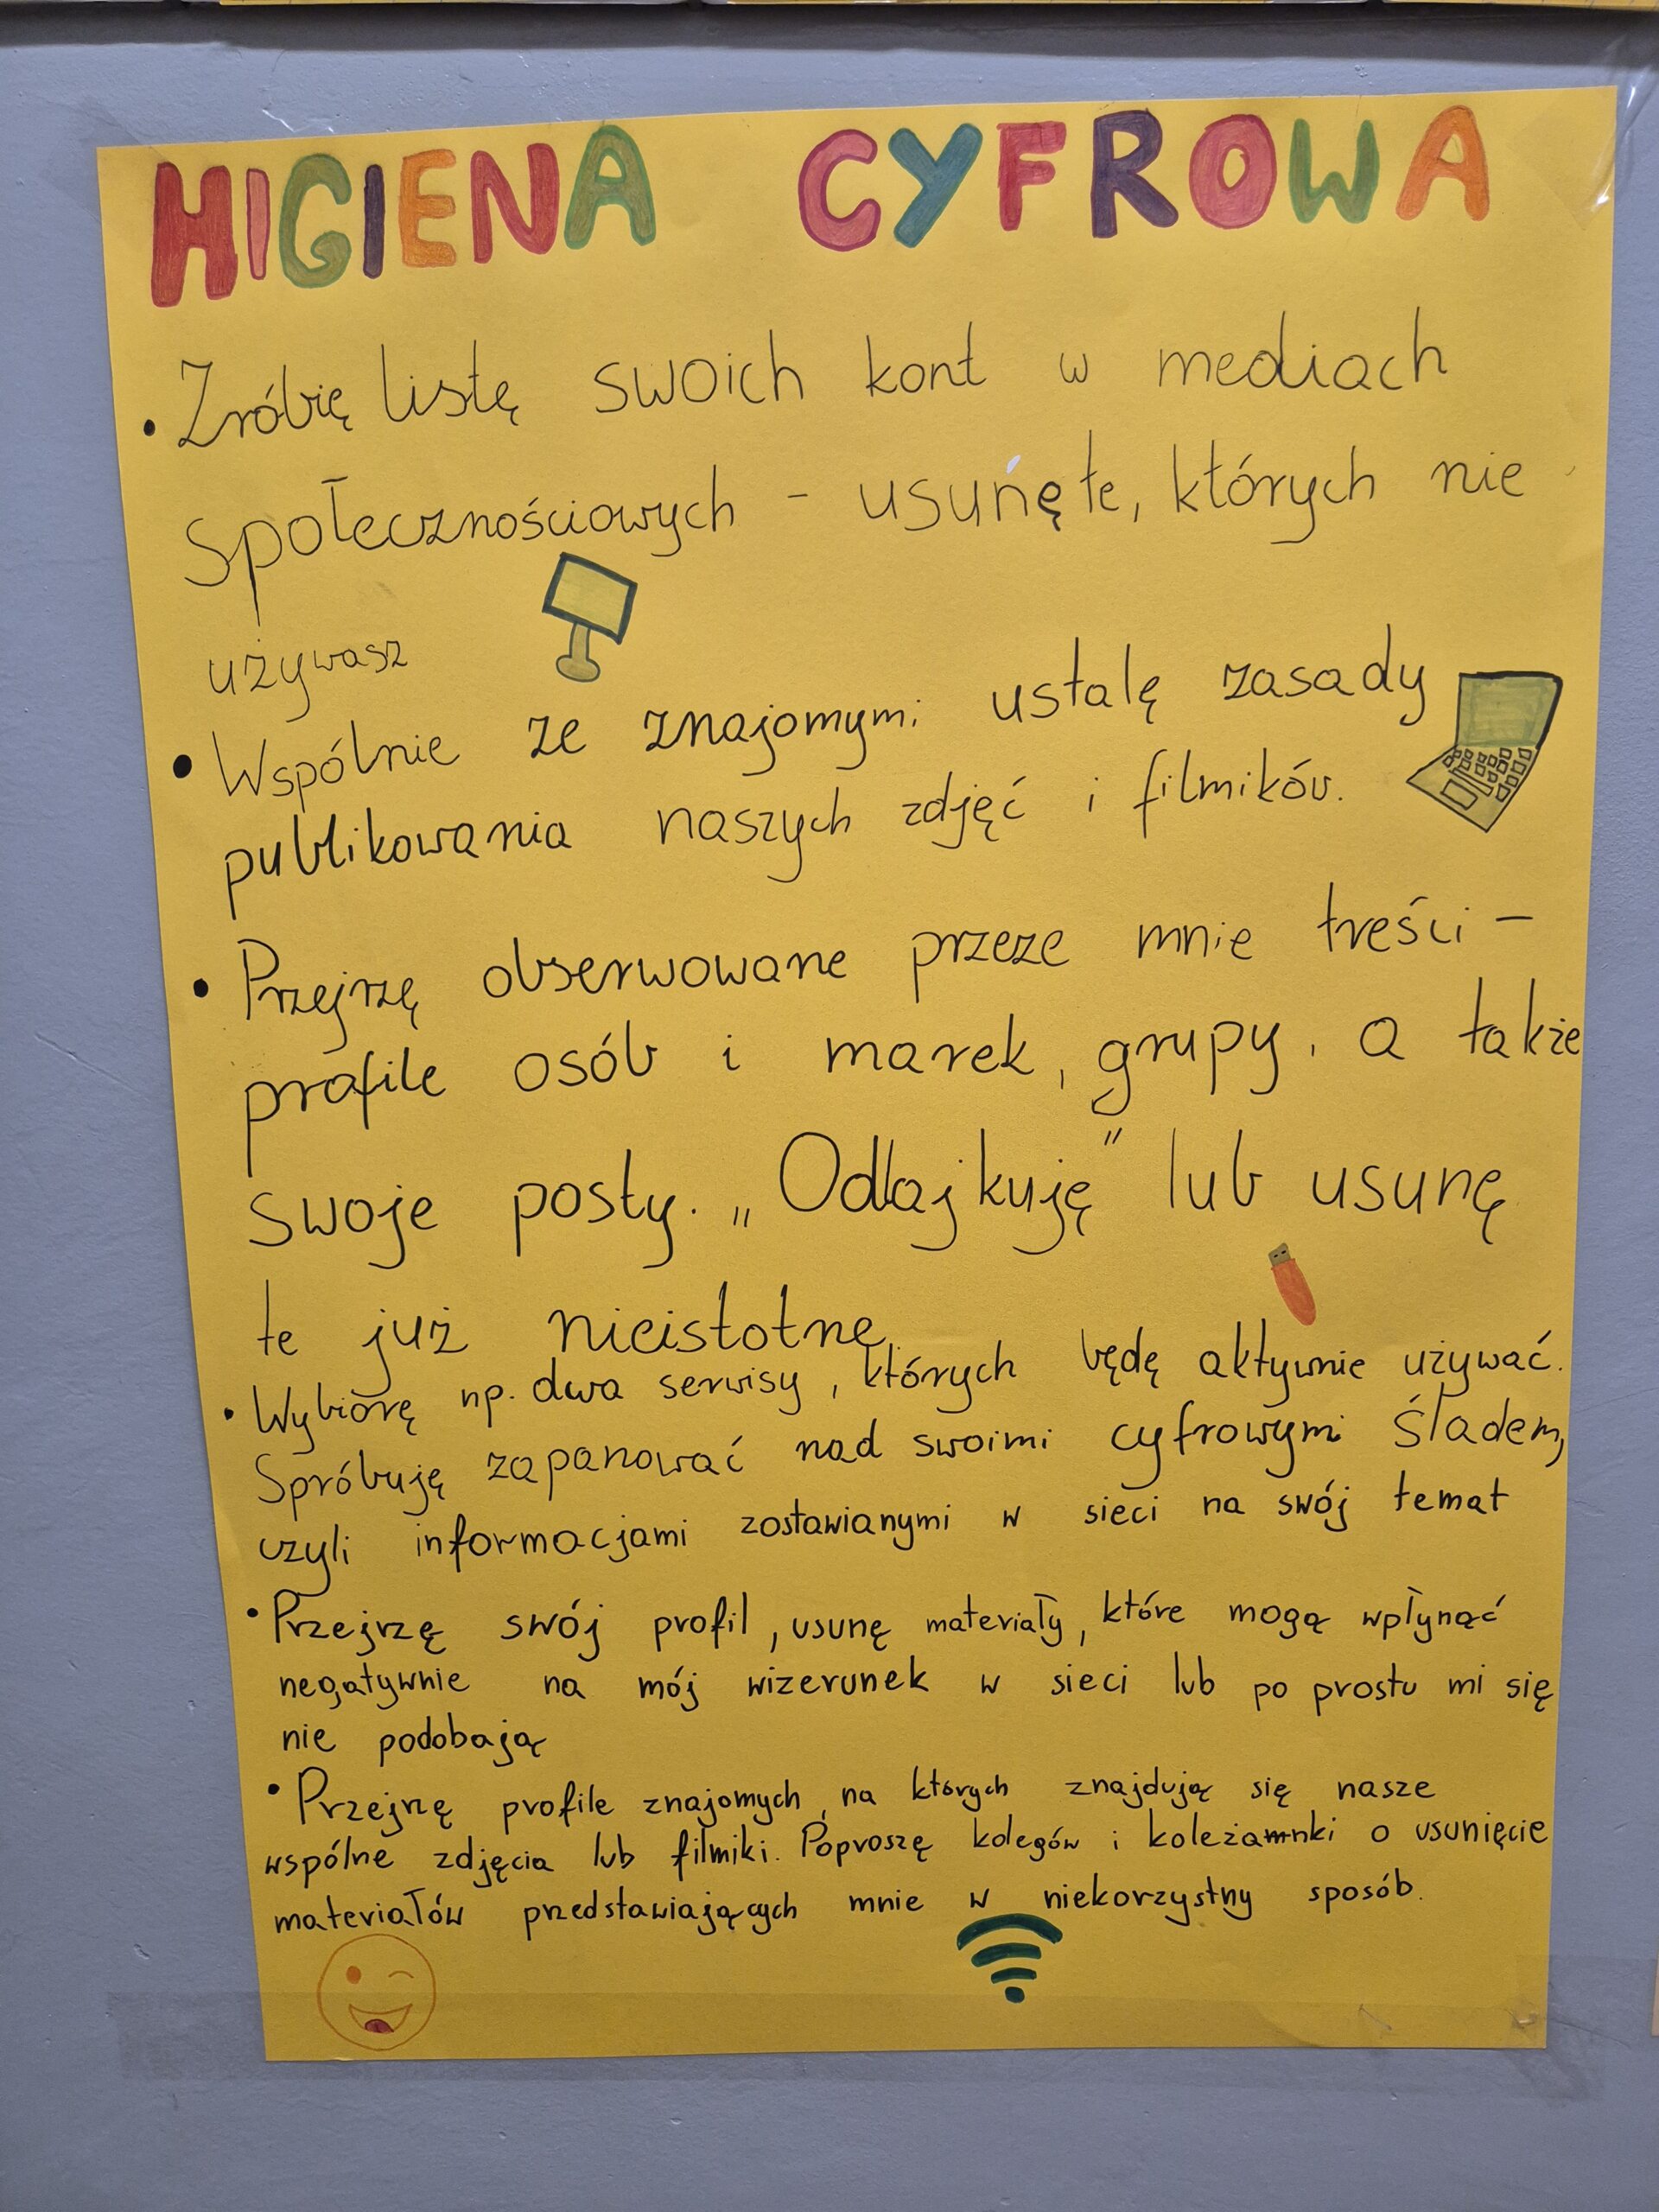 HIGIENA CYFROWA
• Zróbię listę swoich kont w mediach
społecznościowych - usunę te, których nie
używasz
• Wspólnie ze znajomymi ustalę zasady
publikowania naszych zdjęć i filmików.
• Przejrzę obserwowane przeze mnie treści -
profile osób i marek, grupy, a także
swoje posty. „Odlajkuję" lub usunę
te już nieistotne.
• Wybiorę np. dwa serwisy, których będę aktywnie używać.
Spróbuję zapanować nad swoimi cyfrowymi śladem,
czyli informacjami zostawianymi w sieci na swój temat
• Przejrzę swój profil, usunę materiały, które mogą wpłynąć
negatywnie na mój wizerunek w sieci lub po prostu mi się
nie podobają
• Przejrzę profile znajomych, na których znajdują się nasze
wspólne zdjęcia lub filmiki. Poproszę kolegów i koleżamnki o usunięcie
materiałów przedstawiających mnie w niekorzystny sposób.